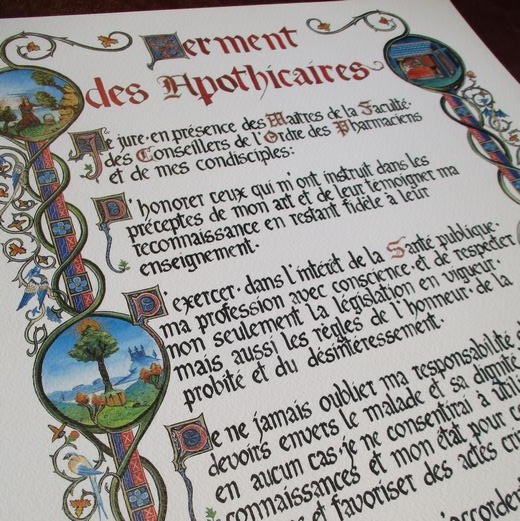 Serment
des Apothicaires
Je jure·en présence des Maîtres de la Faculté·
des Conseillers de l'Ordre des Pharmaciens
et de mes condisciples:
D'honorer ceux qui m'ont instruit dans les
préceptes de mon art et de leur témoigner ma
reconnaissance en restant fidèle à leur
enseignement·
D'exercer·dans l'intérêt de la Santé publique·
ma profession avec conscience·et de respecter
non seulement la législation en vigueur·
mais aussi les règles de l'honneur·de la
probité et du désintéressement·
De ne jamais oublier ma responsabilité
devoirs envers le malade et sa dignité
en aucum cas·je ne consentirai à
connaissances et mon état pour
et favoriser des actes